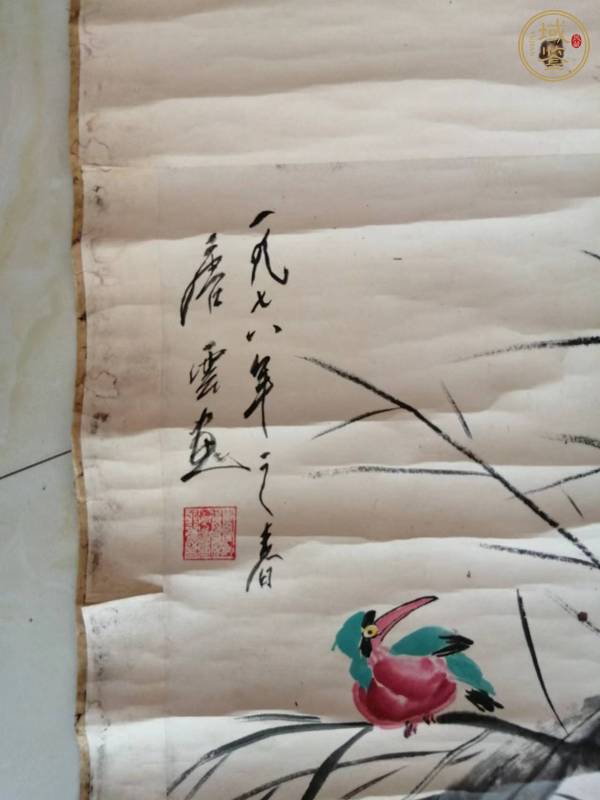 一九七八年之春
唐雲画